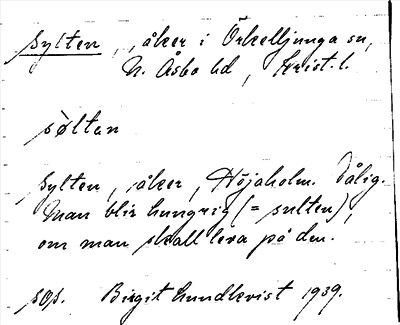 Sylten, åker i Örkelljunga sn,
N. Åsbo hd, Krist. l.
søltan
Sylten, åker, Höjaholm. Dålig.
Man blir hungrig (= sulten),
om man skall leva på den.
sos. Birgit Lundkvist 1939.